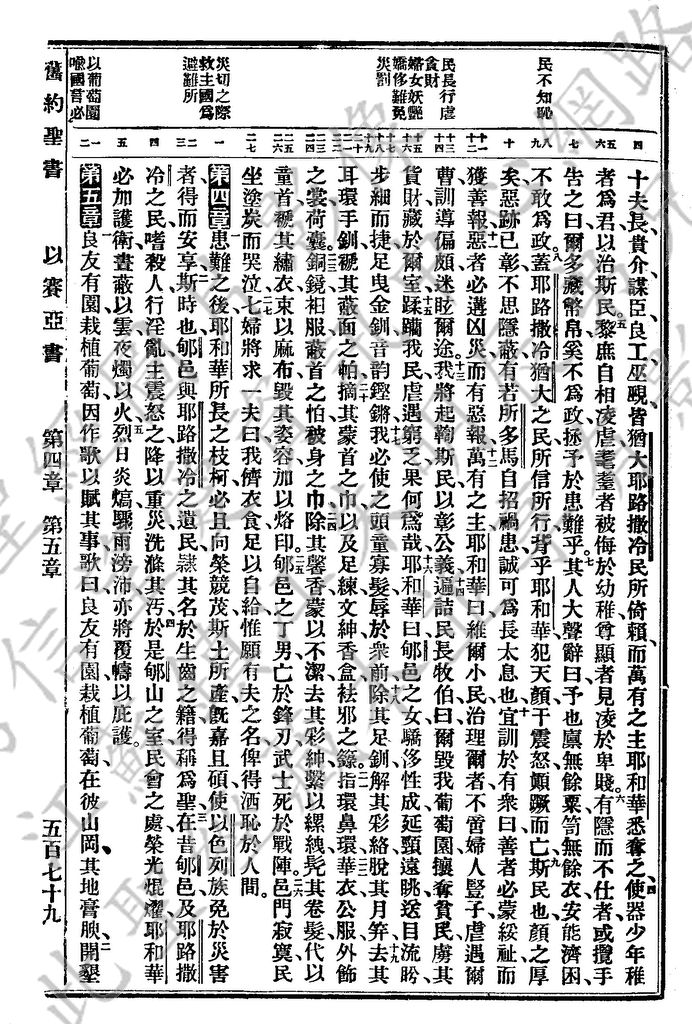 民不知恥
民長行虐
貪財
婦女妖艷
嬌侈難免
災劫
災切之際
救主國為
避難所
以葡萄園
喻國言必
四
五
六
七
八
九
十
十一
十二
十三
十四
十五
十六
十七
十八
十九
二十
二一
二二
二三
二四
二五
二六
二七
一
二
三
四
五
六
一
二
十夫長貴介謀臣良工巫覡皆猶大耶路撒冷民所倚賴而萬有之主耶和華悉奪之使器少年稚
者為君以治斯民黎庶自相凌虐耄耋者被侮於幼稚尊顯者見凌於卑賤有隱而不仕者或攬手
告之曰爾多藏幣帛奚不為政拯予於患難乎其人大聲辭曰予也廩無餘粟笥無餘衣安能濟困
不敢為政蓋耶路撒冷猶大之民所信所行背乎耶和華犯天顏干震怒顛蹶而亡斯民也顏之厚
矣惡跡已彰不思隱蔽有若所多馬自招禍患誠可為長太息也宜訓於有衆曰善者必蒙綏祉而
獲善報惡者必遘凶災而有惡報萬有之主耶和華曰維爾小民治理爾者不啻婦人豎子虐遇爾
曹訓導偏頗迷眩爾途我將起鞫斯民以彰公義遍詰民長牧伯曰爾毀我葡萄園攘奪貧民虜其
貨財藏於爾室蹂躪我民虐遇窮乏果何為哉耶和華曰郇邑之女驕侈性成延頸遠眺送目流盼
步細而捷足曳金釧音韵鏗鏘我必使之頭童寡髮辱於衆前除其足釧解其彩絡脫其月笄去其
耳環手釧褫其蔽面之帕摘其蒙首之巾以及足練文紳香盒祛邪之籙指環鼻環華衣公服外飾
之裳荷囊銅鏡衵服蔽首之帕被身之巾除其馨香蒙以不潔去其彩紳繫以縲絏髡其卷髮代以
童首褫其繡衣束以麻布毀其姿容加以烙印郇邑之丁男亡於鋒刃武士死於戰陣邑門寂寞民
坐塗炭而哭泣七婦將求一夫曰我儕衣食足以自給惟願有夫之名俾得洒恥於人間
第四章患難之後耶和華所長之枝柯必且向榮競茂斯土所產旣嘉且碩使以色列族免於災害
者得而安享斯時也郇邑與耶路撒冷之遺民隸其名於生齒之籍得稱為聖在昔郇邑及耶路撒
冷之民嗜殺人行淫亂主震怒之降以重災洗滌其汚於是郇山之室民會之處榮光焜燿耶和華
必加護衛晝蔽以雲夜燭以火烈日炎熇驟雨滂沛亦將覆幬以庇護
第五章良友有園栽植葡萄因作歌以賦其事歌曰良友有園栽植葡萄在彼山岡其地膏腴開墾
舊約聖書　以賽亞書　第四章　第五章　五百七十九